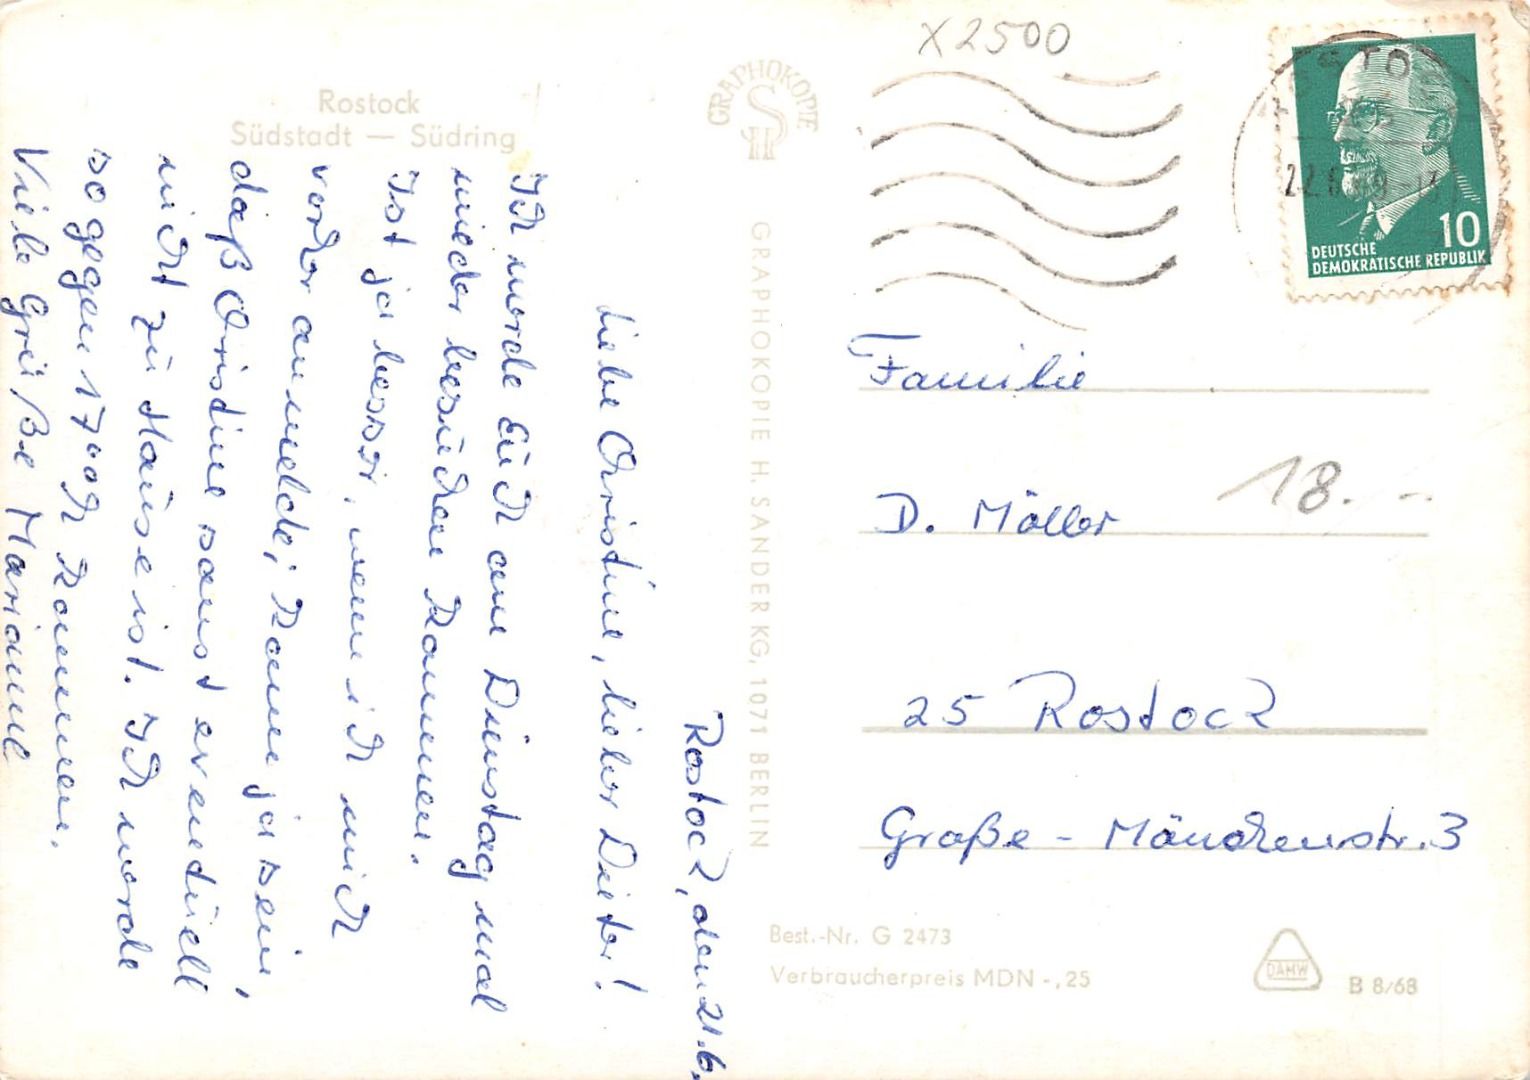 Rostock
Südstadt — Südring
Rostock, den 21.6.
Liebe Christine, lieber Dieter!
Ich werde Euch am Dienstag mal
wieder besuchen kommen.
Ist ja besser, wenn ich mich
vorher anmelde; kann ja sein,
daß Christine sonst eventuell
nicht zu Hause ist. Ich werde
so gegen 17⁰⁰h kommen.
Viele Grüße Marianne
GRAPHOKOPIE
H S
GRAPHOKOPIE H. SANDER KG, 1071 BERLIN
X2500
10
DEUTSCHE
DEMOKRATISCHE REPUBLIK
Familie
D. Möller
18.-
25 Rostock
Große-Mönchenstr. 3
Best.-Nr. G 2473
Verbraucherpreis MDN -,25
DAMW
B 8/68